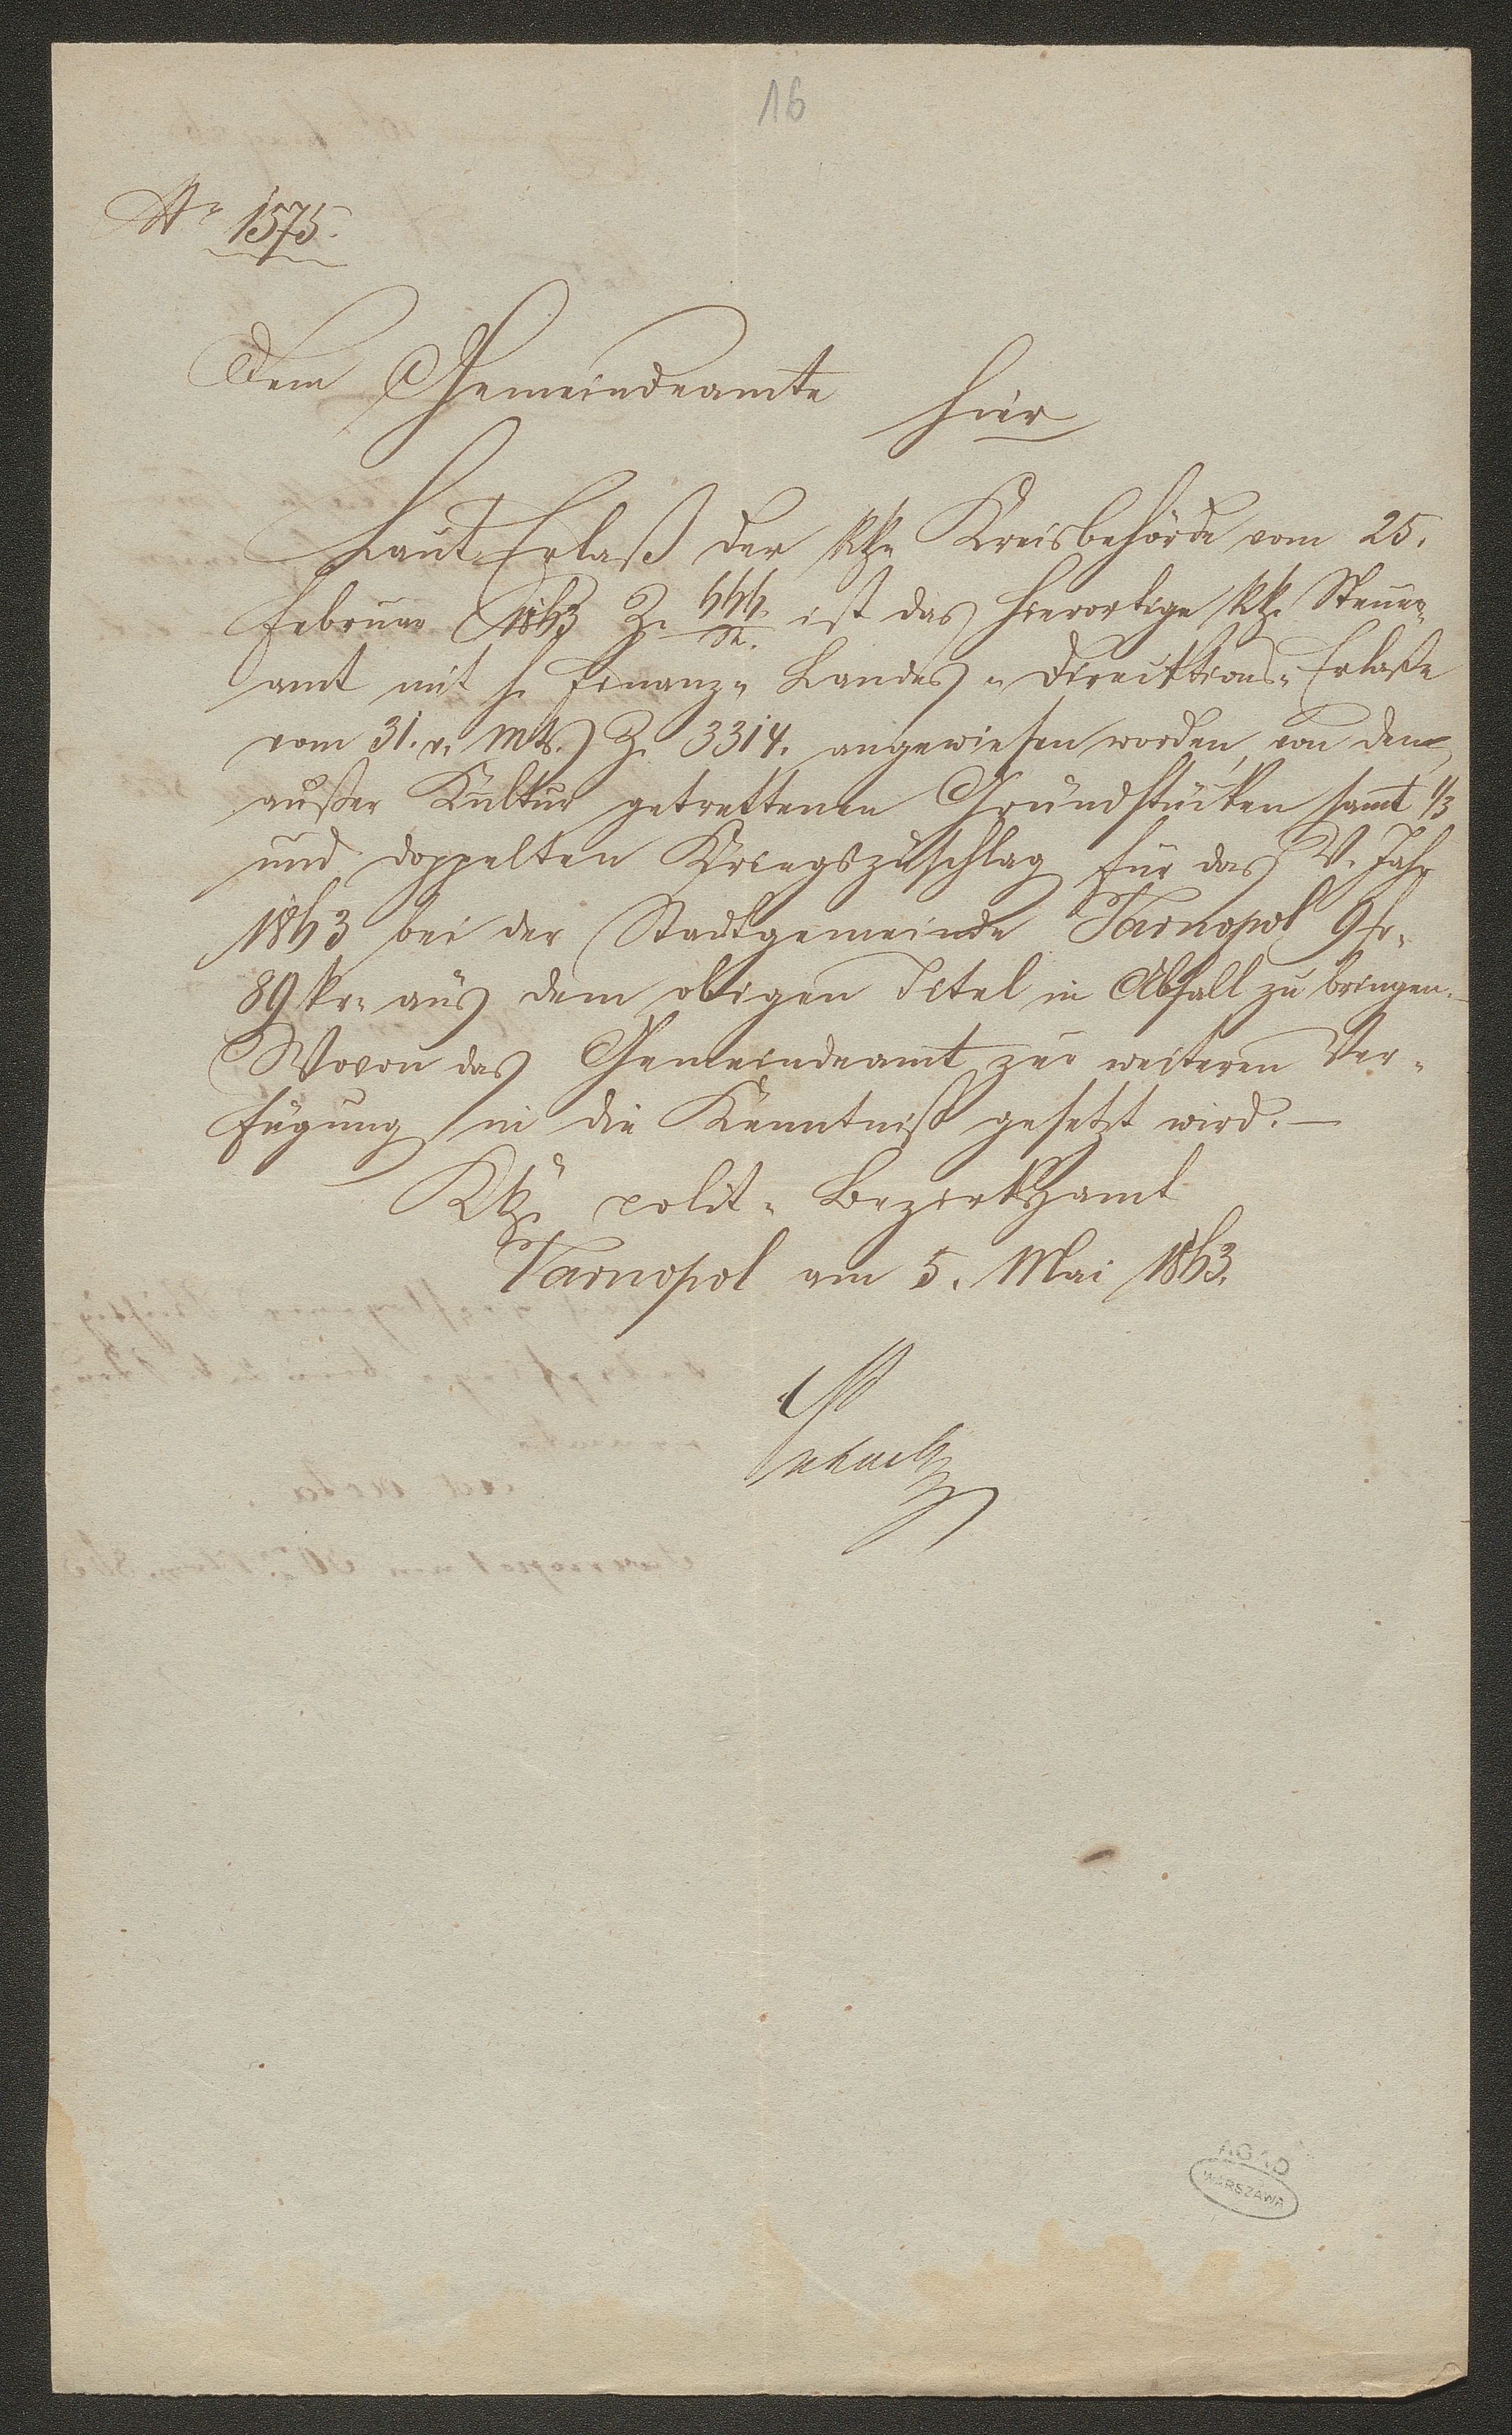 16
Nr 1575.
Dem Gemeindeamte
hier
Laut Erlaß der kk. Kreisbehörde vom 25.
Februar 1863 Z. 666/St. ist das hierortige kk. Steuer-
amt mit h. Finanz- Landes- Direcktions- Erlaße
vom 31. v. Mts. Z. 3314. angewiesen worden, von den
außer Kultur getrettenen Grundstücken sammt 1/3
und doppelten Kriegszuschlag für das V. Jahr
1863 bei der Stadtgemeinde Tarnopol 9 fr.
89 kr. aus dem obigen Titel in Abfall zu bringen.
Wovon das Gemeindeamt zur weiteren Ver-
fügung in die Kenntniß gesetzt wird. —
Kk. polit. Bezirksamt
Tarnopol am 5. Mai 1863.
AGAD
WARSZAWA